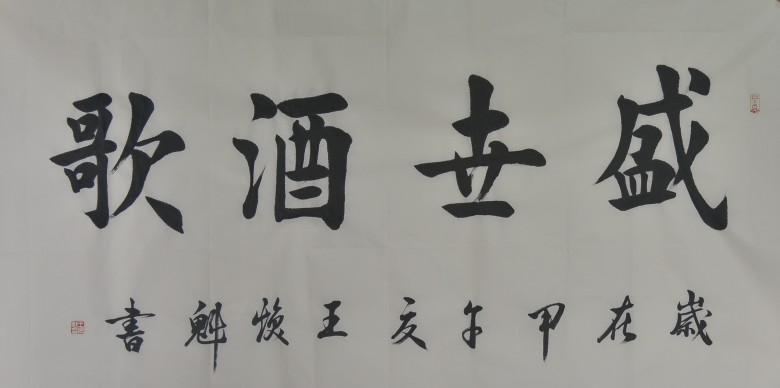 盛世酒歌
歲在甲午夏王焕魁書